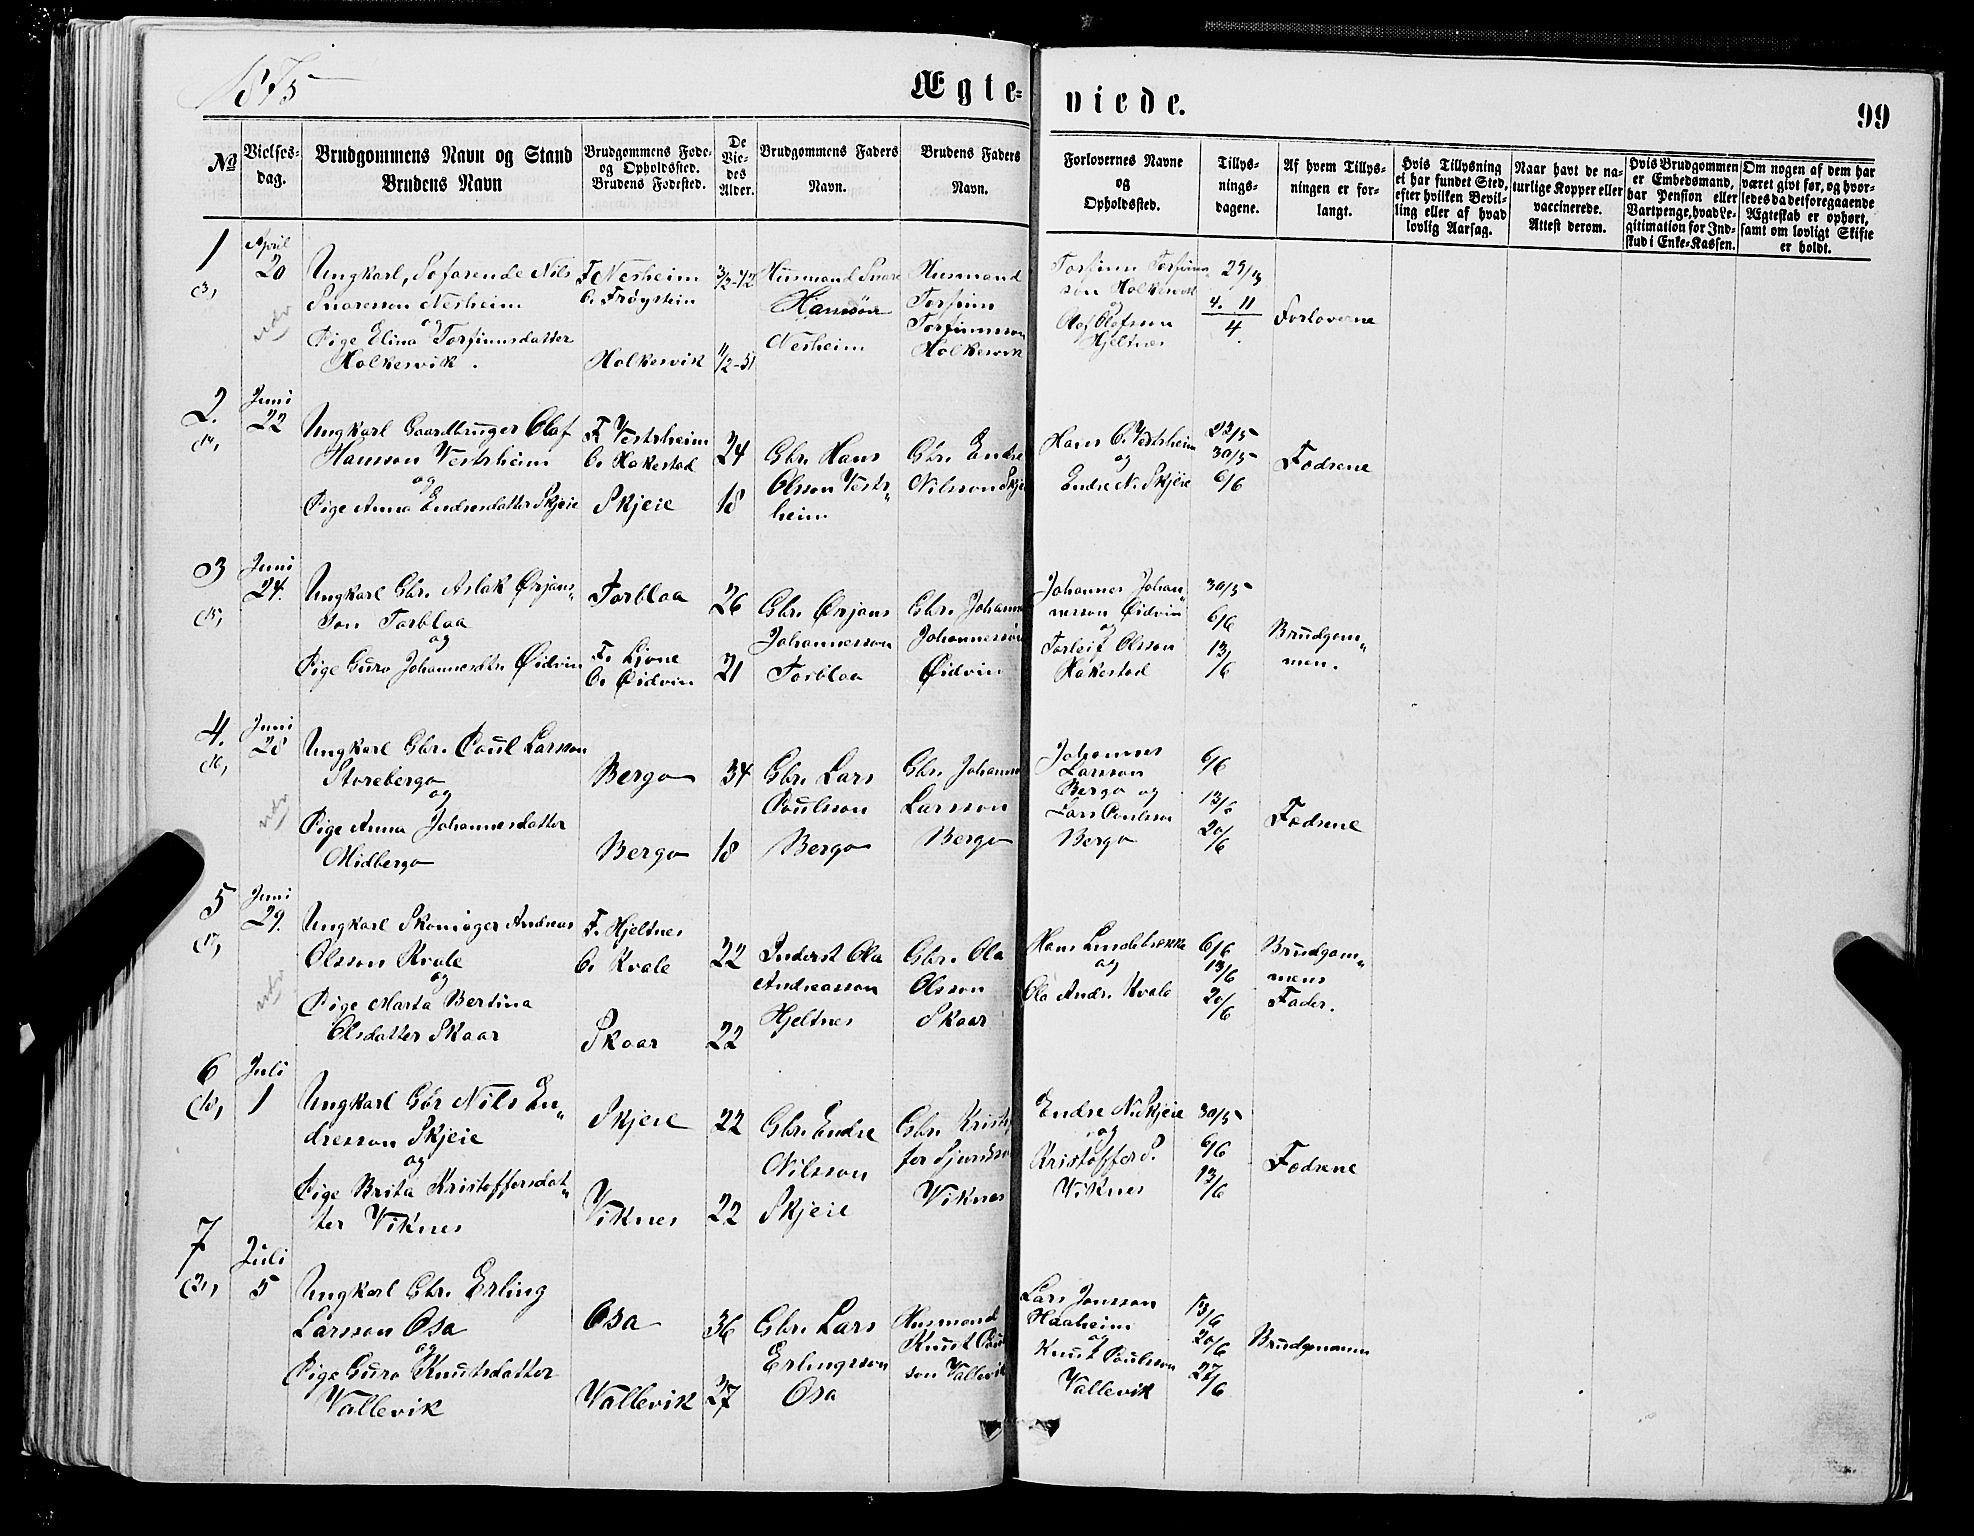 1875
Ægte-
viede.
99
No
Vielses-
dag.
Brudgommens Navn og Stand
Brudens Navn
Brudgommens Føde-
og Opholdssted.
Brudens Fødested.
De
Vie-
des
Alder.
Brudgommens Faders
Navn.
Brudens Faders
Navn.
Forlovernes Navne
og
Opholdssted.
Tillys-
nings-
dagene.
Af hvem Tillys-
ningen er for-
langt.
Hvis Tillysning
ei har fundet Sted,
efter hvilken Bevil-
ling eller af hvad
lovlig Aarsag.
Naar havt de na-
turlige Kopper eller
vaccinerede.
Attest derom.
Hvis Brudgommen
er Embedsmand,
har Pension eller
Vartpenge, hvad Le-
gitimation for Ind-
skud i Enke-Kassen.
Om nogen af dem har
været gift før, og hvor-
ledes da det foregaaende
Ægteskab er ophørt,
samt om lovligt Skifte
er holdt.
1
April
20
Ungkarl, Søfarende Nils
Snaresson Nesheim
og
Pige Elina Torfinnsdatter
Holkesvik.
F. Nesheim
O. Frøystein
Holkesvik
11/2-51
Husmand Snare
Hansson
Nesheim
Husmand
Torfinn
Torfinnsson
Holkesvik
Torfinn Torfinns-
son Holkesvik
og
Olaf Olafsson
Hjeltnes
29/3
4. 11
4
Forloverne
2.
Juni
22
Ungkarl Gaardbruger Olaf
Hansson Vestrheim
og
Pige Anna Endresdatter Skjeie
F. Vestrheim
O. Hakestad
Skjeie
24
18
Gbr. Hans
Olsson Vestr„
heim
Gbr. Endre
Nilsson Skje
Hans O. Vestrheim
og
Endre N. Skjeie
23/5
30/5
6/6
Fædrene
3
Juni
24.
Ungkarl Gbr. Aslak Ørjans„
son Torblaa
og
Pige Guro Johannesdtr. Øidvin
Torblaa
F. Ljone
O. Øidvin
26
21
Gbr. Ørjans
Johannesson
Torblaa
Gbr. Johann
Johannesson
Øidvin
Johannes Johan„
nesson Øidvin
og
Torleif Olsson
Hakestad
30/5
6/6
13/6
Brudgom„
men.
4.
Juni
28
Ungkarl Gbr. Poul Larsson
Storebergo
og
Pige Anna Johannesdatter
Midbergo
Bergo
Bergo
34
18
Gbr. Lars
Poulsson
Bergo
Gbr. Johann
Larsson
Bergo
Johannes
Larsson
Bergo og
Lars Poulsson
Bergo
6/6
13/6
20/6
Fædrene
5
Juni
29.
Ungkarl Skomager Andreas
Olsson Kvale
og
Pige Marta Bertina
Olsdatter Skaar
F. Hjeltnes
O. Kvale
Skaar
22
22
Inderst Ola
Andreasson
Hjeltnes
Gbr. Ola
Olsson
Skaar
Hans Lindebrekke
og
Ola Andr. Kvale
6/6
13/6
20/6
Brudgom„
mens
Fader.
6
Juli
1
Ungkarl Gbr Nils En„
dresson Skjeie
og
Pige Brita Kristoffersdat„
ter Viknes
Skjeie
Viknes
22
22
Gbr. Endre
Nilsson
Skjeie
Gbr. Kristof
fer Sjurdsson
Viknes
Endre N. Skjeie
og
Kristoffer S.
Viknes
30/5
6/6
13/6
Fædrene
7
Juli
5
Ungkarl Gbr. Erling
Larsson Osa
og
Pige Guro Knutsdatter
Vallevik
Osa
Vallevik
36
27
Gbr. Lars
Erlingsson
Osa
Husmand
Knut Poul
son Vallevik
Lars Jonsson
Haaheim
og
Knut Poulsson
Vallevik
13/6
20/6
27/6
Brudgommen